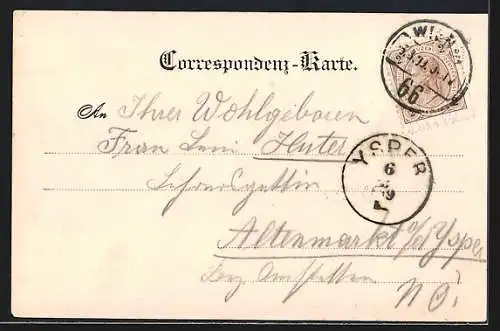 Correspondenz-Karte.
WIEN
66
An Ihrer Wohlgeboren
Frau Leni Huter
YSPER
6
9
Altenmarkt o/d Ysper
Bez Amstetten
N.Ö.